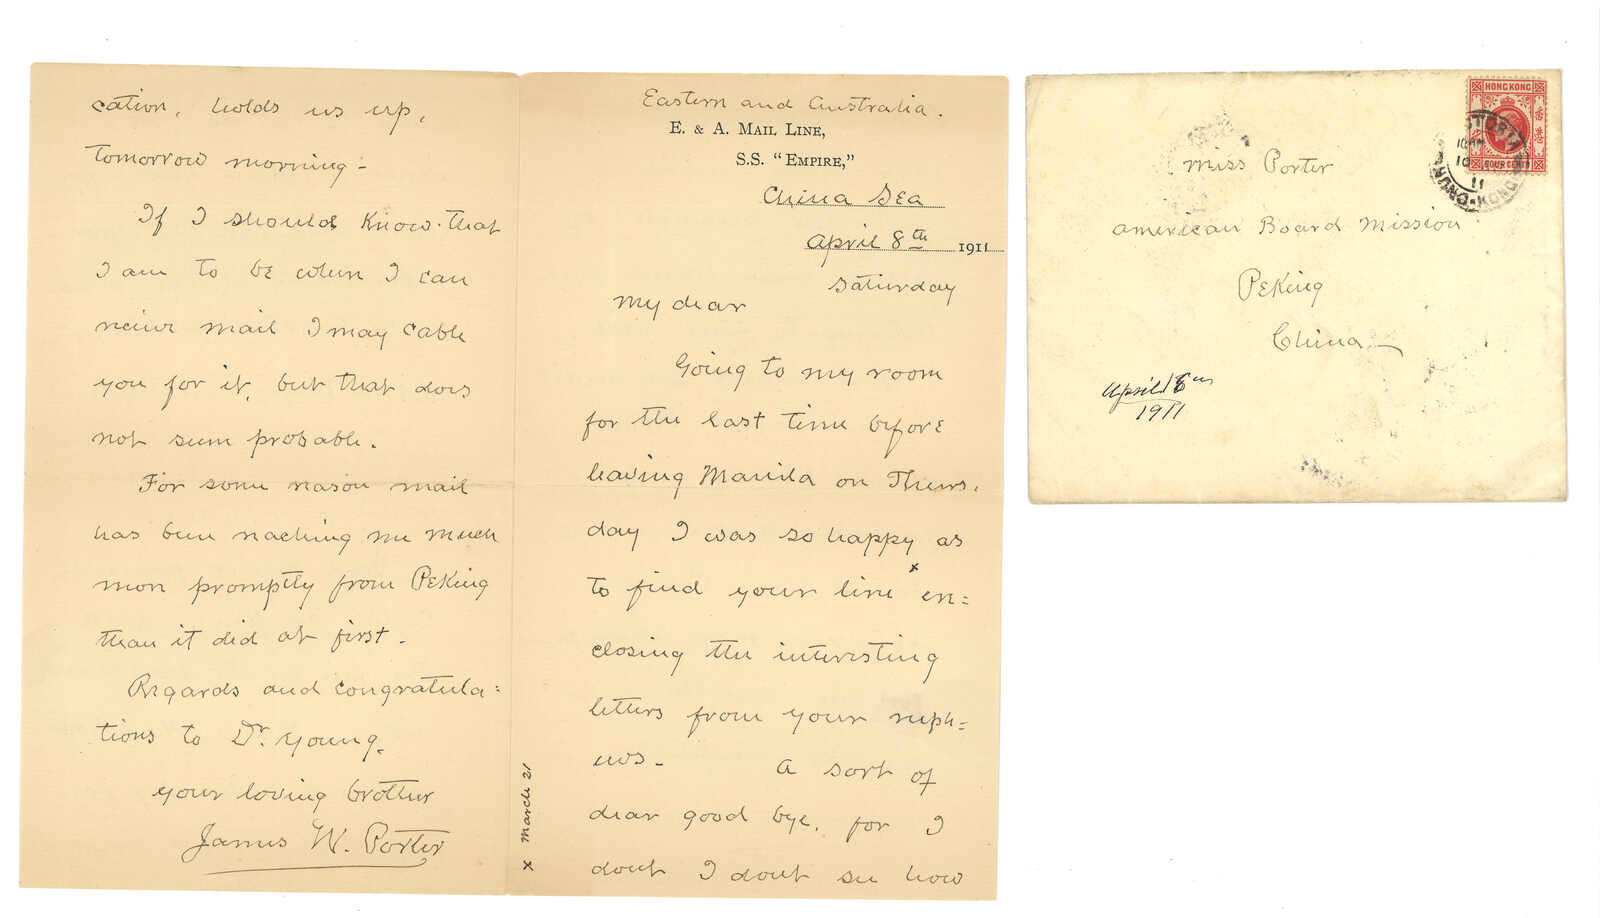 Eastern and Australia.
E. & A. MAIL LINE,
S.S. "EMPIRE,"
China Sea
April 8th 1911
Saturday
My dear
Going to my room
for the last time before
leaving Manila on Thurs-
day I was so happy as
to find your line x en=
closing the interesting
letters from your neph=
ews - A sort of
dear good bye, for I
dont I dont see how
x March 21
cation, holds us up,
tomorrow morning -
If I should know that
I am to be when I can
receive mail I may cable
you for it, but that does
not seem probable.
For some reason mail
has been reaching me much
more promptly from Peking
than it did at first -
Regards and congratula=
tions to Dr. Young.
your loving brother
James W. Porter
HONG KONG
香港
FOUR CENTS
VICTORIA
10
11
HONG-KONG
Miss Porter
American Board Mission
Peking
China
April
1911